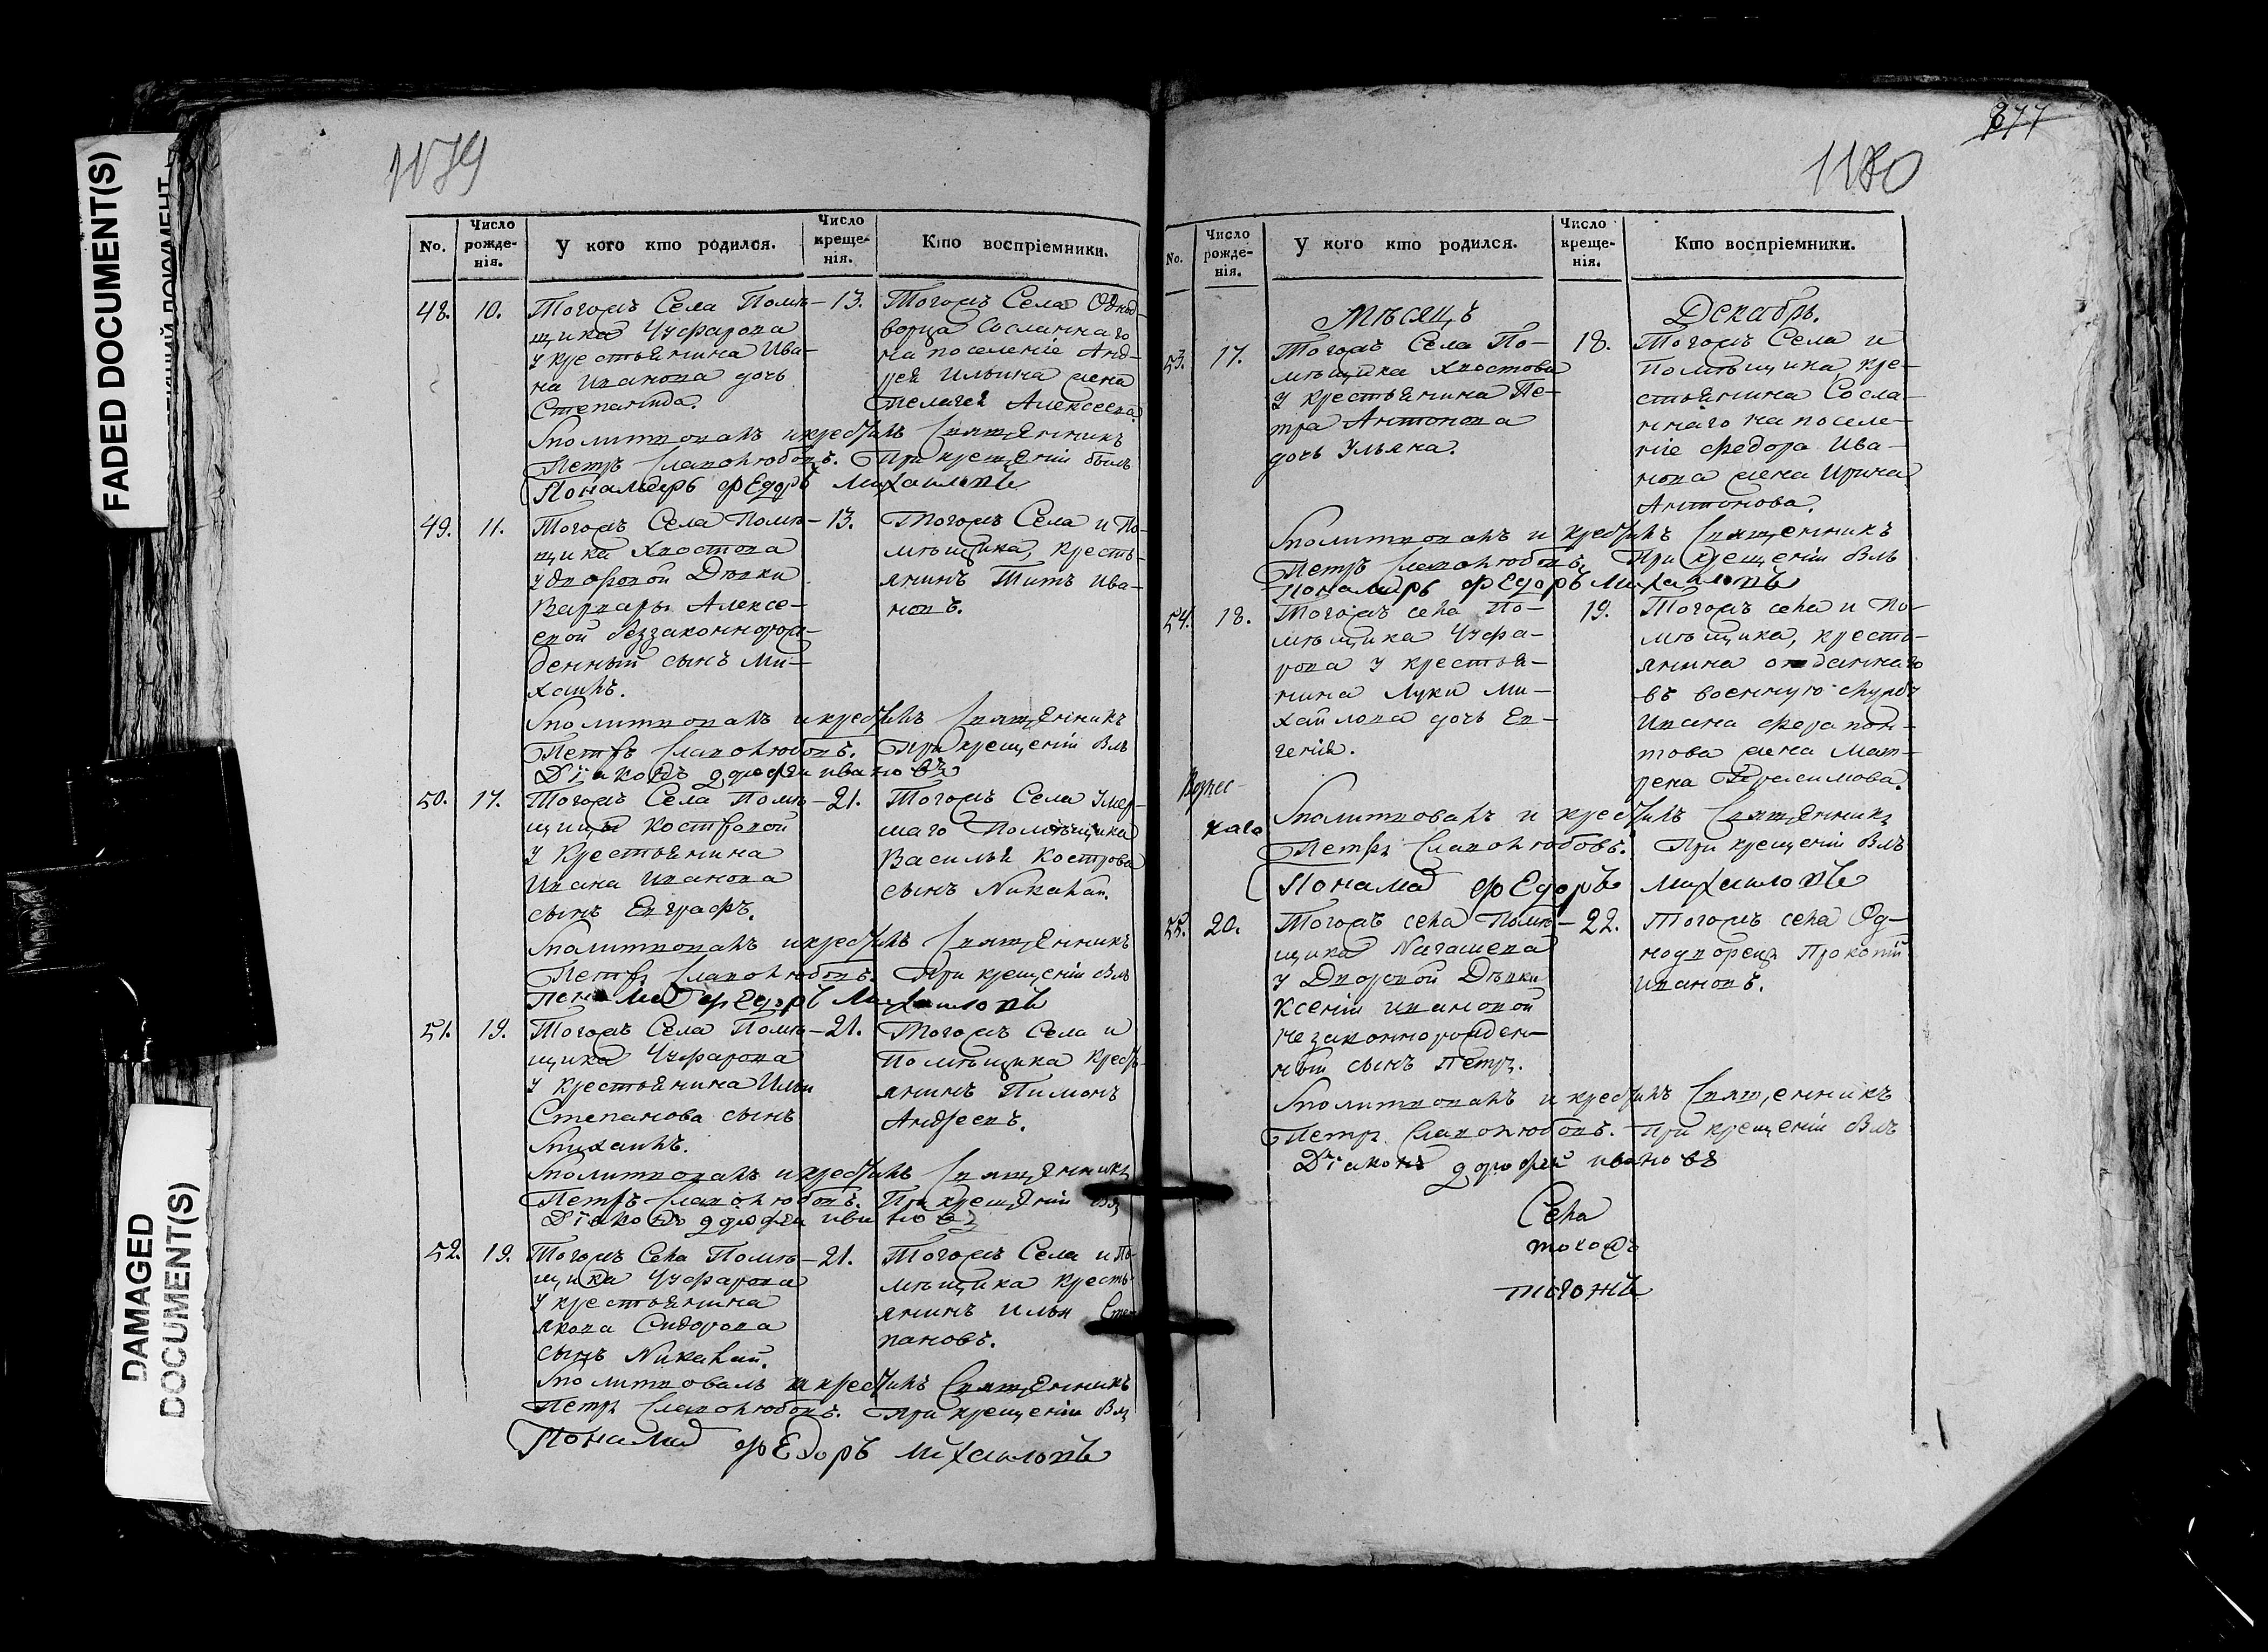 FADED DOCUMENT(S)
DAMAGED
DOCUMENT(S)
1179
No.
Число
рожде-
нія.
У кого кто родился.
Число
креще-
нія.
Кто воспріемники.
48. 10. Тогожъ Села Помѣ- 13.
щика Чуфарова
у крестьянина Ива-
на Иванова дочь
Степанида.
Тогожъ Села Однод-
ворца Сосланнаго
на поселеніе Анд-
рея Ильина жена
Пелагея Алексеева
Молитвовалъ и крестилъ Священникъ
Петръ Славолюбовъ. При крещеніи былъ
Понамарь Федоръ Михаиловъ
49. 11. Тогожъ Села Помѣ- 13.
щика Хвостова
у дворовой Дѣвки
Варвары Алексе-
евой беззаконнорож-
денный сынъ Ми-
хаилъ.
Тогожъ Села и По-
мѣщика, кресть-
янинъ Титъ Ива-
новъ.
Молитвовалъ и крестилъ Священникъ
Петръ Славолюбовъ. При крещеніи былъ
Діаконъ Дорофей Ивановъ
50. 17. Тогожъ Села Помѣ- 21.
щицы Костровой
у Крестьянина
Ивана Иванова
сынъ Евграфъ.
Тогожъ Села Умер-
шаго Помѣщика
Василья Кострова
сынъ Николай.
Молитвовалъ и крестилъ Священникъ
Петръ Славолюбовъ. При крещеніи былъ
Понамарь Федоръ Михаиловъ
51. 19. Тогожъ Села Помѣ- 21.
щика Чуфарова
у крестьянина Ильи
Степанова сынъ
Михаилъ.
Тогожъ Села и
Помѣщика Кресть-
янинъ Пимонъ
Андреевъ.
Молитвовалъ и крестилъ Священникъ
Петръ Славолюбовъ. При крещеніи былъ
Діаконъ Дорофей Ивановъ
52. 19. Тогожъ Села Помѣ- 21.
щика Чуфарова
у крестьянина
Якова Сидорова
сынъ Николай.
Тогожъ Села и По-
мѣщика кресть-
янинъ Илья Сте-
пановъ.
Молитвовалъ и крестилъ Священникъ
Петръ Славолюбовъ. При крещеніи былъ
Понамарь Федоръ Михаиловъ
677
1180
No.
Число
рожде-
нія.
У кого кто родился.
Число
креще-
нія.
Кто воспріемники.
Мѣсяцъ Декабрь.
53. 17. Тогожъ Села По- 18.
мѣщика Хвостова
у крестьянина Пе-
тра Антонова
дочь Ульяна.
Тогожъ Села и
Помѣщика, кре-
стьянина Сосла-
ннаго на поселе-
ніе Федора Ива-
нова жена Ирина
Антонова.
Молитвовалъ и крестилъ Священникъ
Петръ Славолюбовъ. При крещеніи былъ
Понамарь Федоръ Михаиловъ
54. 18. Тогожъ села По- 19.
мѣщика Чуфа-
рова у крестья-
нина Луки Ми-
хайлова дочь Ев-
генія.
Тогожъ села и По-
мѣщика, кресть-
янина отданнаго
въ военную службу
Ивана Ферапон-
това жена Мат-
рена Герасимова.
Молитвовалъ и крестилъ Священникъ
Петръ Славолюбовъ. При крещеніи былъ
Понамарь Федоръ Михаиловъ
55. 20. Тогожъ села Помѣ- 22.
щика
у Дворовой Дѣвки
Ксеніи Ивановой
незаконнорожден-
ный сынъ Петръ.
Тогожъ села Од-
нодворецъ Прокопій
Ивановъ.
Молитвовалъ и крестилъ Священникъ
Петръ Славолюбовъ. При крещеніи былъ
Діаконъ Дорофей Ивановъ
Села
тогожъ
тогожъ